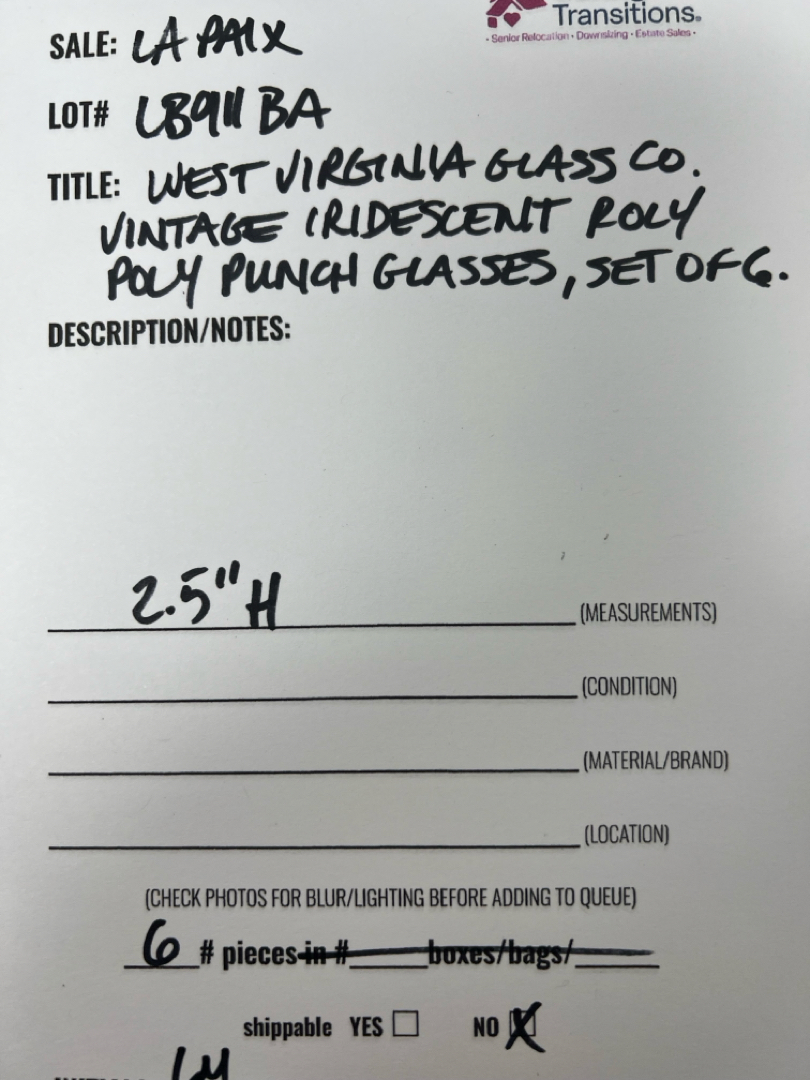 Transitions®
• Senior Relocation • Downsizing • Estate Sales •
SALE: LA PAIX
LOT# LB911 BA
TITLE: WEST VIRGINIA GLASS CO.
VINTAGE IRIDESCENT ROLY
POLY PUNCH GLASSES, SET OF 6.
DESCRIPTION/NOTES:
2.5" H (MEASUREMENTS)
(CONDITION)
(MATERIAL/BRAND)
(LOCATION)
(CHECK PHOTOS FOR BLUR/LIGHTING BEFORE ADDING TO QUEUE)
6 # pieces in # boxes/bags/
shippable YES ☐ NO ☒